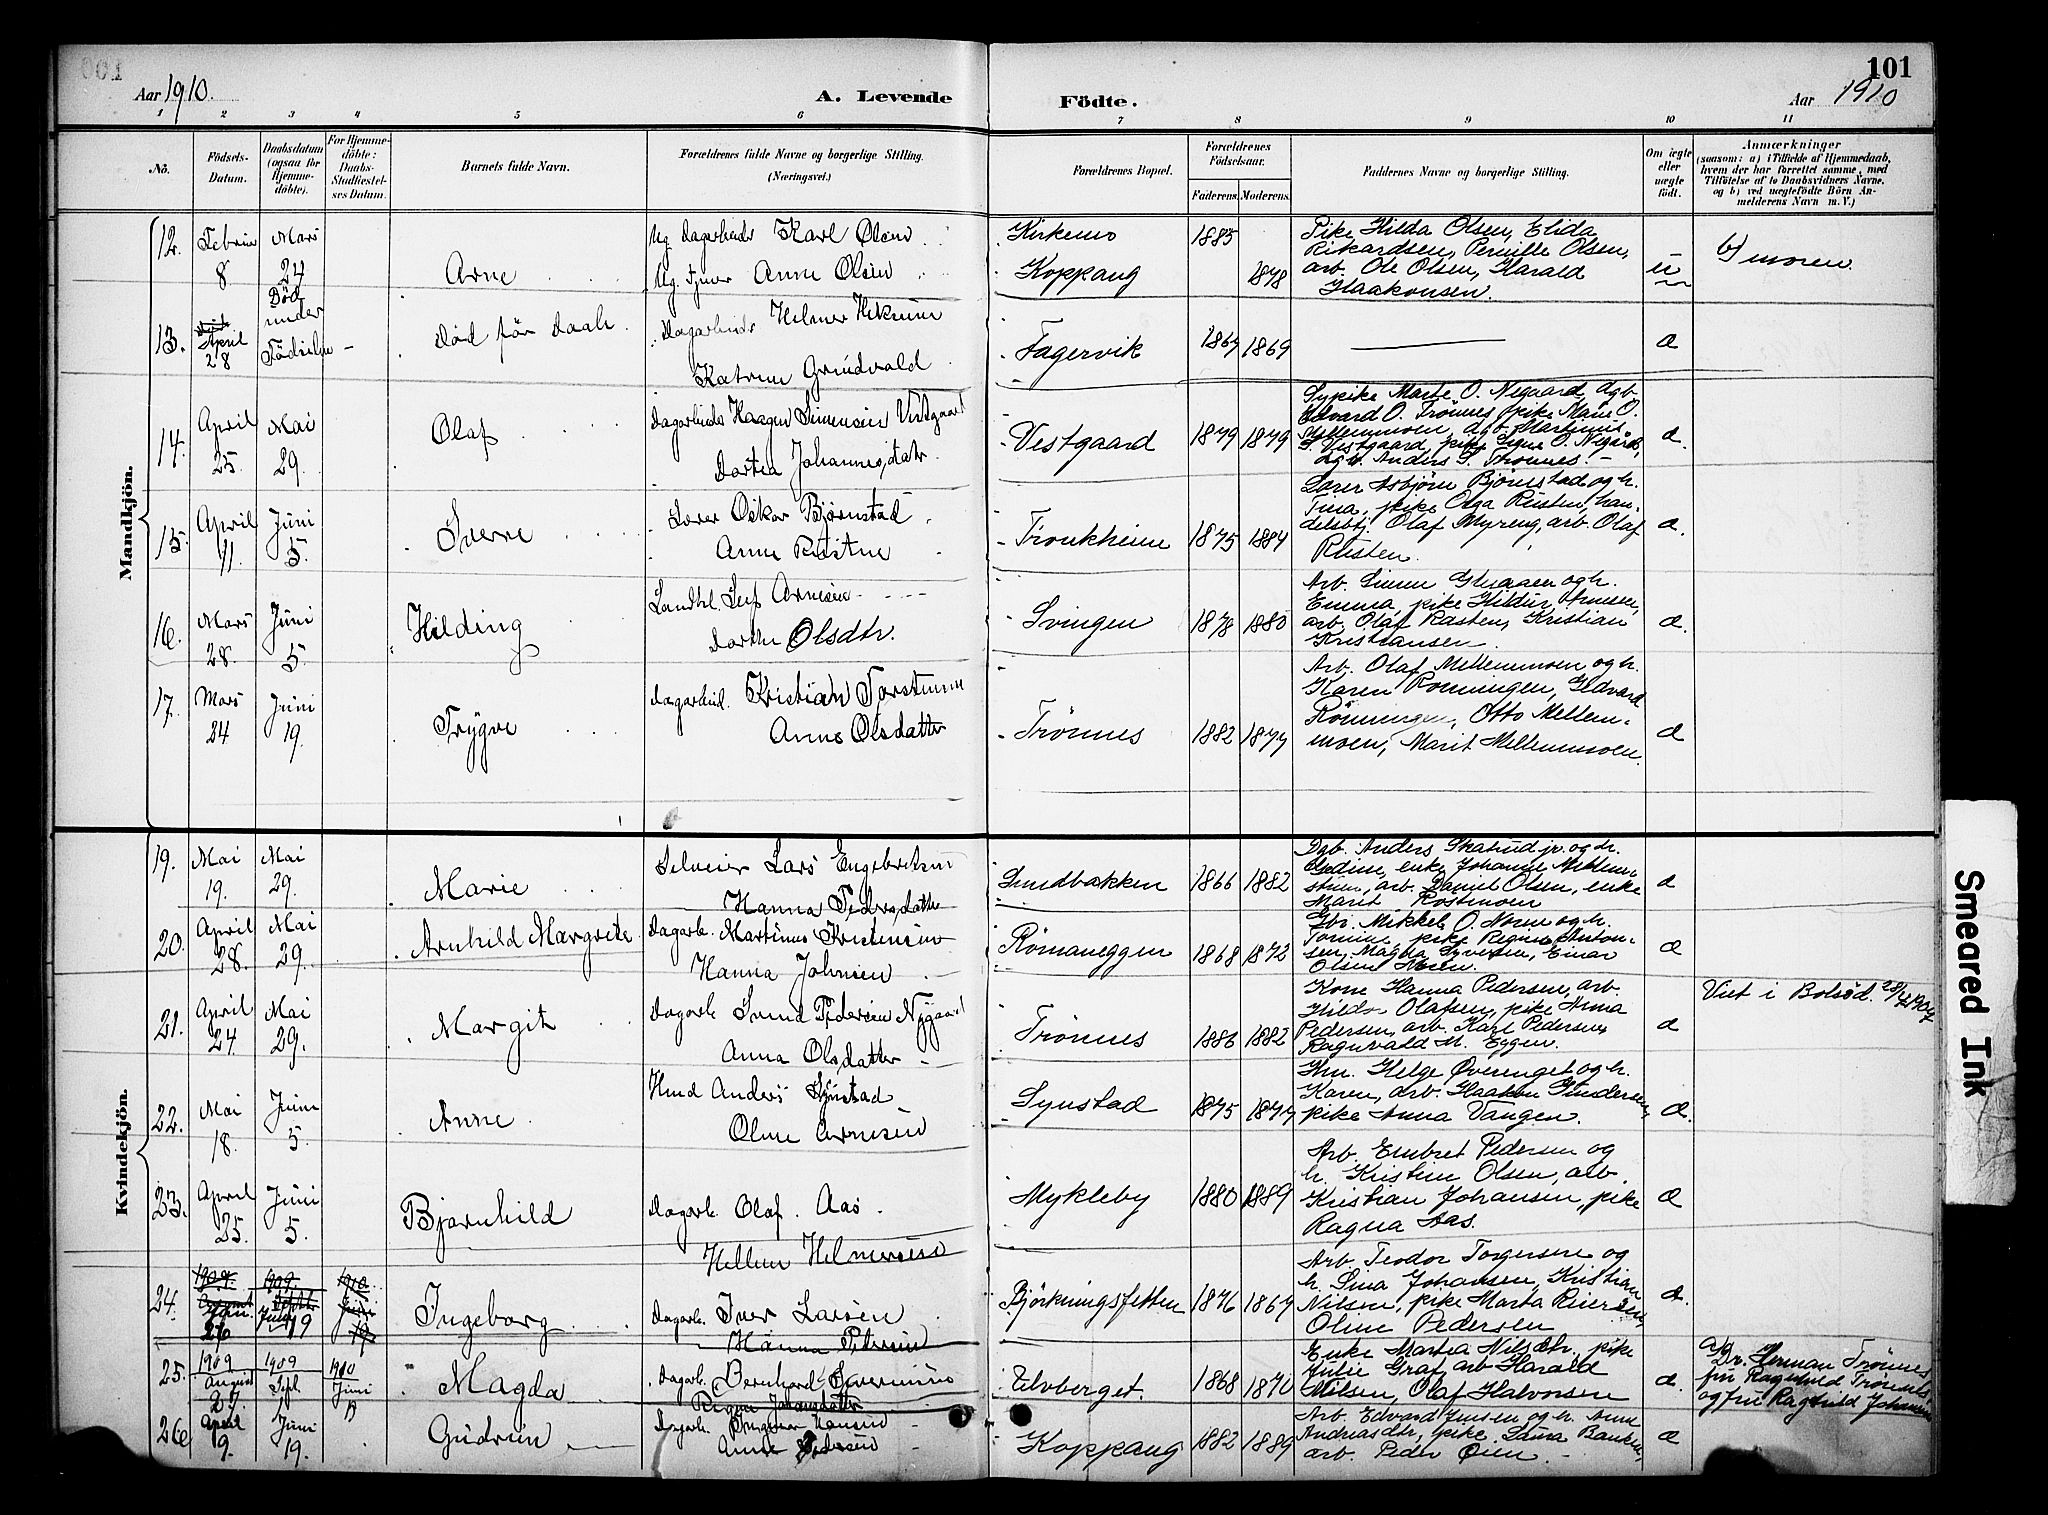 101
Aar 1910.
A. Levende Födte.
Aar 1910
1 2 3 4 5 6 7 8 9 10 11
No.
Födsels-Datum.
Daabsdatum (ogsaa for Hjemme-döbte).
For Hjemme-döbte: Daabs-Stadfæstel-ses Datum.
Barnets fulde Navn.
Forældrenes fulde Navne og borgerlige Stilling. (Næringsvei.)
Forældrenes Bopæl.
Forældrenes Födselsaar.
Faderens. Moderens.
Faddernes Navne og borgerlige Stilling.
Om ægte eller uægte födt.
Anmærkninger
(saasom: a) i Tilfælde af Hjemmedaab,
hvem der har forrettet samme, med
Tilföielse af to Daabsvidners Navne,
og b) ved uægtefödte Börn An-
melderens Navn m. V.)
Mandkjön.
12. Februar 8 Mars 24
Arne
Ug. Dagarbeider Karl Olsen
Ug. Tjener Anne Olsen
Kirkemo
Koppang
1885 1878
Pike Hilda Olsen, Elida
Rikardsen, Pernille Olsen,
arb. Ole Olsen, Harald
Haakonsen.
u
b) moren.
13. April 28 Død under Fødselen -
Død før daab.
Dagarbeider Helmer
Katrine Grundvald
Fagervik
1867 1869
æ
14. April 25. Mai 29.
Olaf
Dagarbeider Haagen Simensen Vestgaard
Dortea Johannesdatr.
Vestgaard
1879 1879
Sypike Marte O. Negaard, dgb.
Edvard O. Trønnes, pike Marie O.
Mellemmoen, dgb. Martinus
S. Vestgaard, pike Signe O. Negård,
dgb. Anders S. Trønnes. -
æ.
15. April 11. Juni 5.
Sverre
Lærer Oskar Bjørnstad
Anne Rustne
Tronkheim
1875 1884
Lærer Asbjørn Bjørnstad og h.
Tina, pike Olga Rusten, han-
delsbtj. Olaf Myreng, arb. Olaf
Rusten.
æ.
16. Mars 28. Juni 5.
Hilding
Landhl. Leif Arnesen
Dorthe Olsdtr.
Svingen
1878 1880
Arb. Simen og h.
Emma, pike Hildur Arnesen,
arb. Olaf Rasten, Kristian
Kristiansen.
æ.
17. Mars 24 Juni 19.
Trygve
Dagarbeid. Kristian Torstensen
Anne Olsdatter
Trønnes
1882 1877
Arb. Olaf Mellemmoen og h.
Karen Rønningen, Edvard
Rønningen, Otto Mellem-
moen, Marit Mellemmoen.
æ
Kvindekjön.
19. Mai 19. Mai 29.
Marie
Selveier Lars Engebretsen
Hanna Pedersdatter
Sundbakken
1866 1882
Dgb. Anders Skatrud jr. og h.
enke Johanne Mellem-
arb. Daniel Olsen, enke
Marit Rostmoen
æ
20. April 28. Mai 29.
Arnhild Margrete
Dagarb. Martinus Kristensen
Hanna Johnsen
Rømaneggen
1868 1872
Gbr. Mikkel O. Moren og h.
pike Ragna Anton-
sen, Magda Syversen, Einar
Olsen Moren.
æ
21. April 24. Mai 29.
Margit
Dagarb. Svend Pedersen Nygaard
Anna Olsdatter
Trønnes
1886 1882
Kone Hanna Pedersen, arb.
Hildor Olafsen, pike Anna
Pedersen, arb. Karl Pedersen,
Ragnvald M. Eggen.
æ
Viet i Bolsød. 28/12 1907
22. Mai 18. Juni 5.
Anne
Hmd Anders Synstad
Oline Arnesen
Synstad
1875 1877
Hm. Helge Øverenget og h.
Karen, arb. Haakon Gundersen,
pike Anna Vangen.
æ.
23. April 25. Juni 5.
Bjarnhild
Dagarb. Olaf Aas.
Hellen Helmersen
Mykleby
1880 1889
Arb. Embret Pedersen og
h. Kristine Olsen, arb.
Kristian Johansen, pike
Ragna Aas.
æ
24. 1909. 1909. 1910
26 Juli 19 Juni 19
Ingeborg
Dagarb. Iver Larsen
Hanna Pedersen
Bjørkningsfetten
1876 1867
Arb. Teodor Torgersen og
h. Lina Johansen, Kristian
Nilsen, pike Marta Riersen,
Oline Pedersen
æ.
25. 1909 August 27. 1909 Sept. 1 1910 Juni 13
Magda
Dagarb. Bernhard Severinsen
Regine Johansdatter
Elvberget.
1868 1870
Enke Martea Nilsdtr., pike
Julie Graf, arb. Harald
Nilsen, Olaf Halvorsen
æ.
a) Dr. Herman Trønnes
fru Ragnhild Trønnes
og fru Ragnhild Johansen
26 April 9. Juni 19.
Gudrun
Dagarb. Ingvar Hansen
Anne Pedersen
Koppang
1882 1889
Arb. Edvard Jensen og h. Anne
Andreasdtr, pike Lina Bakken,
arb. Peder Øien. -
æ
Smeared Ink